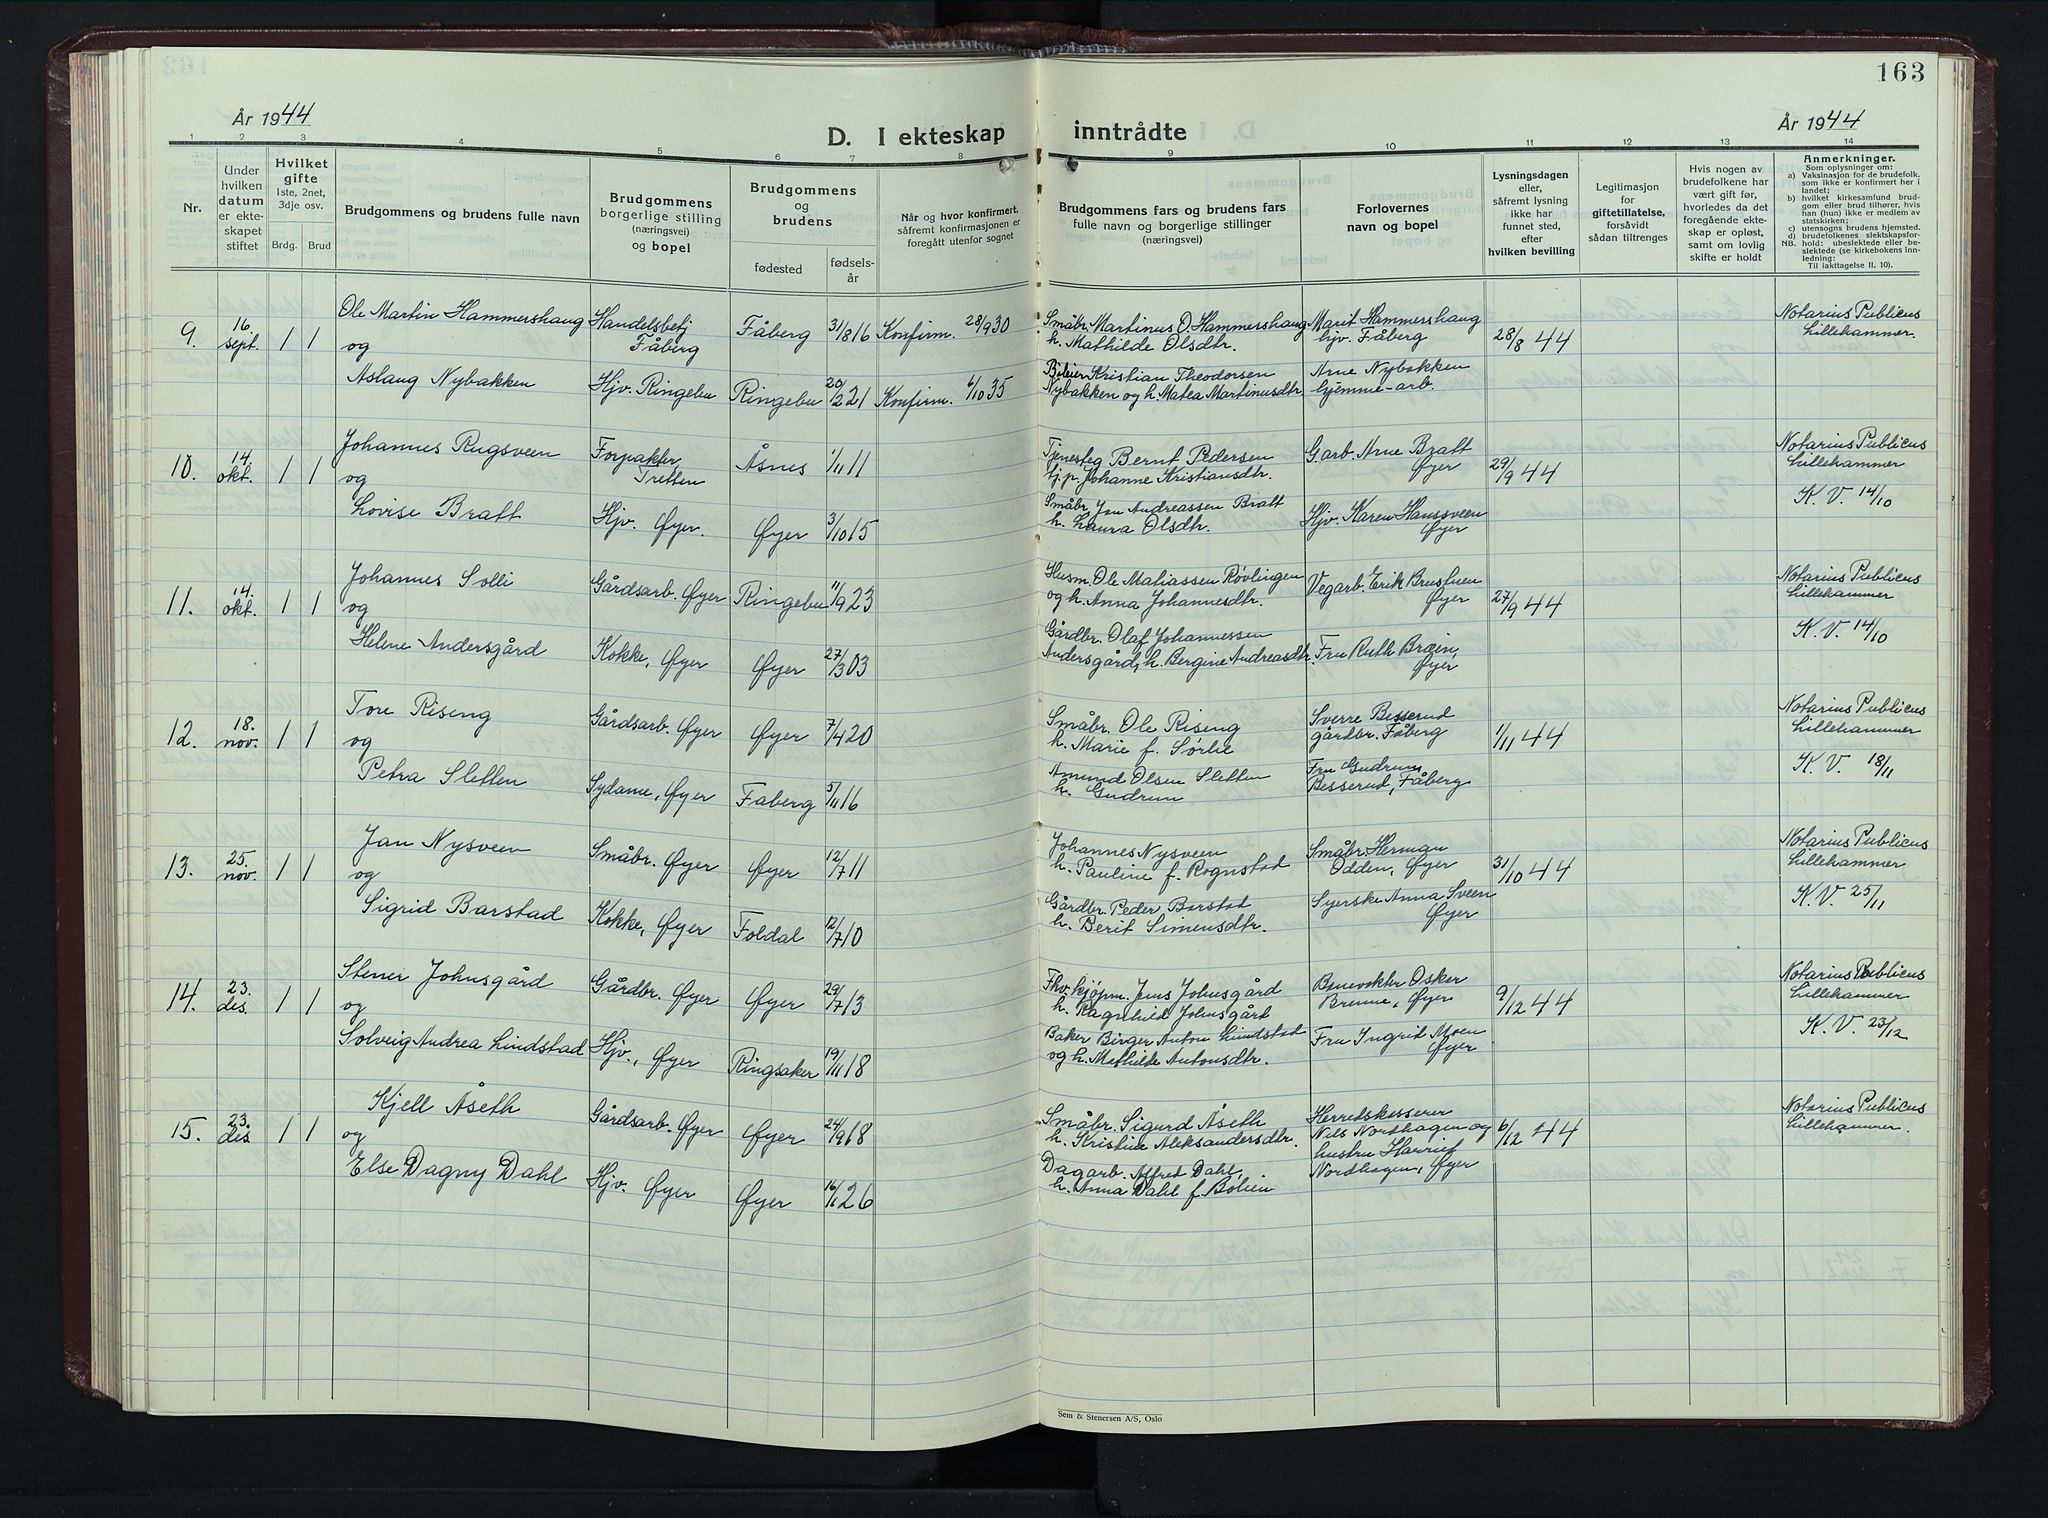 163
År 1944
D. I ekteskap inntrådte
År 1944
1 2 3 4 5 6 7 8 9 10 11 12 13 14
Nr.
Under
hvilken
datum
er ekte-
skapet
stiftet
Hvilket
gifte
1ste, 2net,
3dje osv.
Brdg. Brud
Brudgommens og brudens fulle navn
Brudgommens
borgerlige stilling
(næringsvei)
og bopel
Brudgommens
og
brudens
fødested
fødsels-
år
Når og hvor konfirmert,
såfremt konfirmasjonen er
foregått utenfor sognet
Brudgommens fars og brudens fars
fulle navn og borgerlige stillinger
(næringsvei)
Forlovernes
navn og bopel
Lysningsdagen
eller,
såfremt lysning
ikke har
funnet sted,
efter
hvilken bevilling
Legitimasjon
for
giftetillatelse,
forsåvidt
sådan tiltrenges
Hvis nogen av
brudefolkene har
vært gift før,
hvorledes da det
foregående ekte-
skap er opløst,
samt om lovlig
skifte er holdt
Anmerkninger.
Som oplysninger om:
a) Vaksinasjon for de brudefolk,
som ikke er konfirmert her i
landet;
b) hvilket kirkesamfund brud-
gom eller brud tilhører, hvis
han (hun) ikke er medlem av
statskirken;
c) utensogns brudens hjemsted.
d) brudefolkenes slektskapsfor-
NB. hold: ubeslektede eller be-
slektede (se kirkebokens inn-
ledning:
Til iakttagelse II, 10).
9. 16. sept. 1 1 Ole Martin Hammershaug
og
Handelsbetj
Fåberg
Fåberg 31/8 16 Konfirm. 28/9 30
Småbr. Martinus O. Hammershaug
h. Mathilde Olsdtr.
Marit Hammershaug
hjv. Fåberg
28/8 44
Notarius Publicus
Lillehammer.
Aslaug Nybakken Hjv. Ringebu Ringebu 20/2 21 Konfirm. 6/10 35
Kristian Theodorsen
Nybakken og h. Matea Martinusdtr.
Arne Nybakken
hjemme-arb.
10. 14. okt. 1 1 Johannes Rugsveen
og
Forpakter
Tretten
Åsnes 1/11 11
Tjenesteg Bernt Pedersen
tj. p. Johanne Kristiansdtr.
G.arb. Arne Bratt
Øyer
29/9 44
Notarius Publicus
Lillehammer
K. V. 14/10
Lovise Bratt Hjv. Øyer. Øyer 3/10 15
Småbr. Jan Andreassen Bratt
h. Laura Olsdtr.
Hjv. Karen Haugsveen
Øyer
11. 14. okt. 1 1 Johannes Solli
og
Gårdsarb. Øyer Ringebu 11/9 23
Husm. Ole Matiassen Røvlingen
og h. Anna Johannesdtr.
Vegarb. Erik Brusfuen
Øyer
27/9 44
Notarius Publicus
Lillehammer
K. V. 14/10
Helene Andersgård Kokke, Øyer Øyer 27/3 03
Gårdbr. Olaf Johannessen
Andersgård, h. Bergine Andreasdtr.
Fru Ruth Bræin,
Øyer
12. 18. nov. 1 1 Tore Riseng
og
Gårdsarb. Øyer Øyer 7/4 20
Småbr. Ole Riseng
h. Marie f. Sørlie
Sverre Besserud
gårdbr. Fåberg
1/11 44
Notarius Publicus
Lillehammer
K. V. 18/11
Petra Sletten Sydame, Øyer Fåberg 5/11 16
Amund Olsen Sletten
h. Gudrun
Fru Gudrun
Besserud, Fåberg
13. 25. nov. 1 1 Jan Nysveen
og
Småbr. Øyer Øyer 12/7 11
Johannes Nysveen
h. Pauline f. Rognstad
Småbr. Herman
Odden, Øyer
31/10 44
Notarius Publicus
Lillehammer
K. V. 25/11
Sigrid Barstad Kokke, Øyer Foldal 12/7 10
Gårdbr. Peder Barstad
h. Berit Simensdtr.
Syerske Anna Sveen
Øyer
14. 23. des. 1 1 Stener Johnsgård
og
Gårdbr. Øyer Øyer 29/7 13
Fhv. kjøpm. Jens Johnsgård
h. Ragnhild Johnsgård
Banevokter Oskar
Brenne, Øyer
9/12 44
Notarius Publicus
Lillehammer
K. V. 23/12
Solveig Andrea Lindstad Hjv., Øyer Ringsaker 19/11 18
Baker Birger Anton Lindstad
og h. Mathilde Antonsdtr.
Fru Ingrid Moen
Øyer
15. 23. des 1 1 Kjell Åseth
og
Gårdsarb. Øyer Øyer 24/9 18
Småbr. Sigurd Åseth
h. Kristine Aleksandersdtr.
Herredskasserer
Nils Nordhagen og
hustru Harriet
Nordhagen, Øyer
6/12 44
Notarius Publicus
Lillehammer.
Else Dagny Dahl Hjv. Øyer Øyer 16/1 26
Dagarb. Alfred Dahl,
h. Anna Dahl f. Bølien
Sem & Stenersen A/S, Oslo